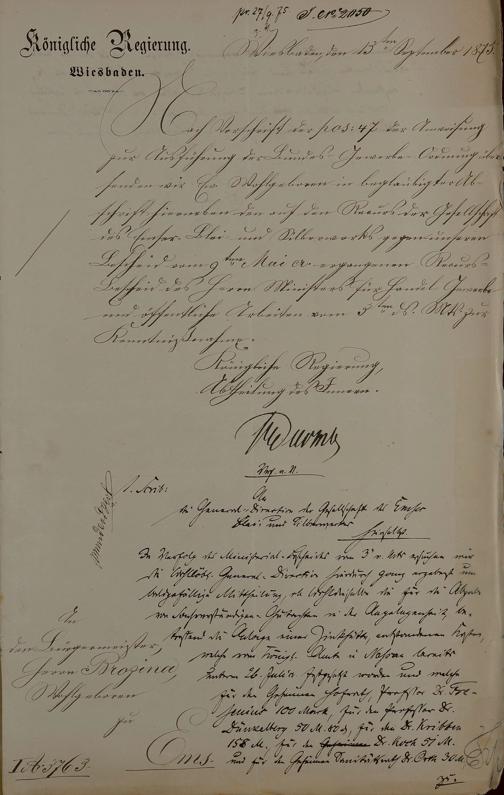 pr. 27/9. 75 J. No 2050
Königliche Regierung.
Wiesbaden.
Wiesbaden, den 13ten September 1875.
Nach Vorschrift der pos: 47 der Anweisung
zur Ausführung der Bundes-Gewerbe-Ordnung über-
senden wir Ew. Wohlgeboren in beglaubigter Ab-
schrift hierneben den auf den Recurs der Gesellschaft
des Emser-Blei- und Silberwerks gegen unseren
Bescheid vom 9ten Mai cr. ergangenen Recurs-
Bescheid des Herrn Ministers für Handel, Gewerbe
und öffentliche Arbeiten vom 3ten ds. Mts. zur
Kenntnißnahme.
Königliche Regierung,
Abtheilung des Innern.
1. Schrb:
An
die General-Direction der Gesellschaft des Emser
Blei- und Silberwerks
hierselbst
In Verfolg des Ministerial-Bescheides vom 3. v. Mts ersuchen wir
die General-Direction hierdurch ganz ergebenst um
gefällige Mittheilung, ob dieselbe die für die Abgabe
von Sachverständigen-Gutachten in der Angelegenheit, be-
treffend die Anlage einer Zinkhütte, entstandenen Kosten,
welche vom Königl. Amte in Nassau bereits
unterm 26. Juli festgesetzt worden und welche
für den Geheimen Hofrath, Professor Dr. Fre-
senius 100 Mark, für den Professor Dr.
Dünkelberg 50 M. für den Dr. Kribben
M. für den Dr. Koch 51 M.
und für den Geheimen Sanitätsrath Dr. Orth 30 M.
An
den Bürgermeister,
Herrn
Wohlgeboren
zu
Ems.
I A 3763